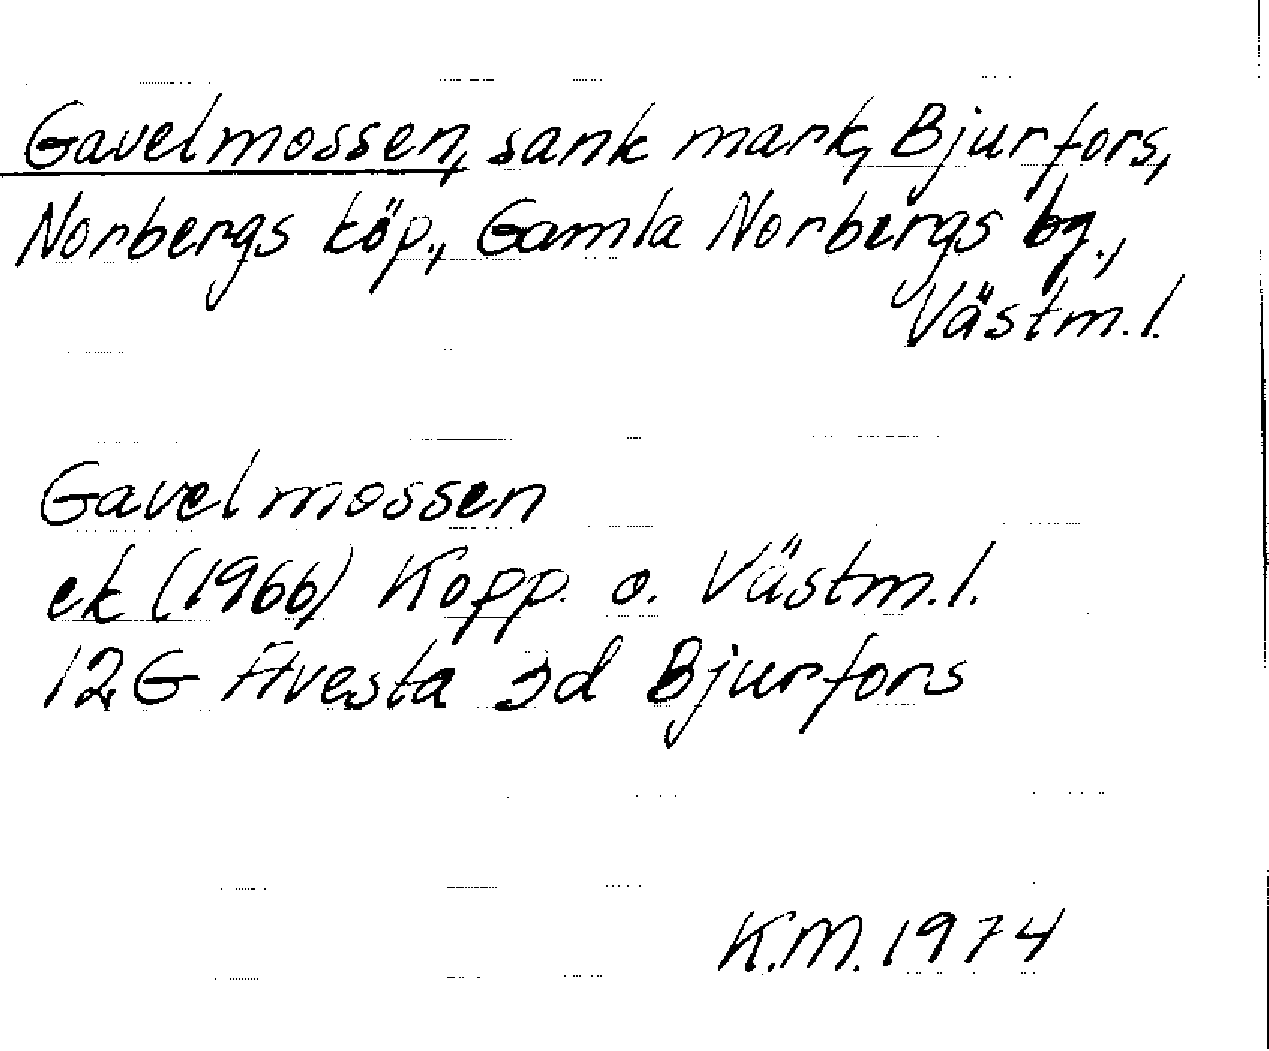 Gavelmossen, sank mark, Bjurfors,
Norbergs köp., Gamla Norbergs bg.,
Västm.l.
Gavelmossen
ek (1966) Kopp. o. Västm.l.
12G Avesta 3d Bjurfors
K.M. 1974